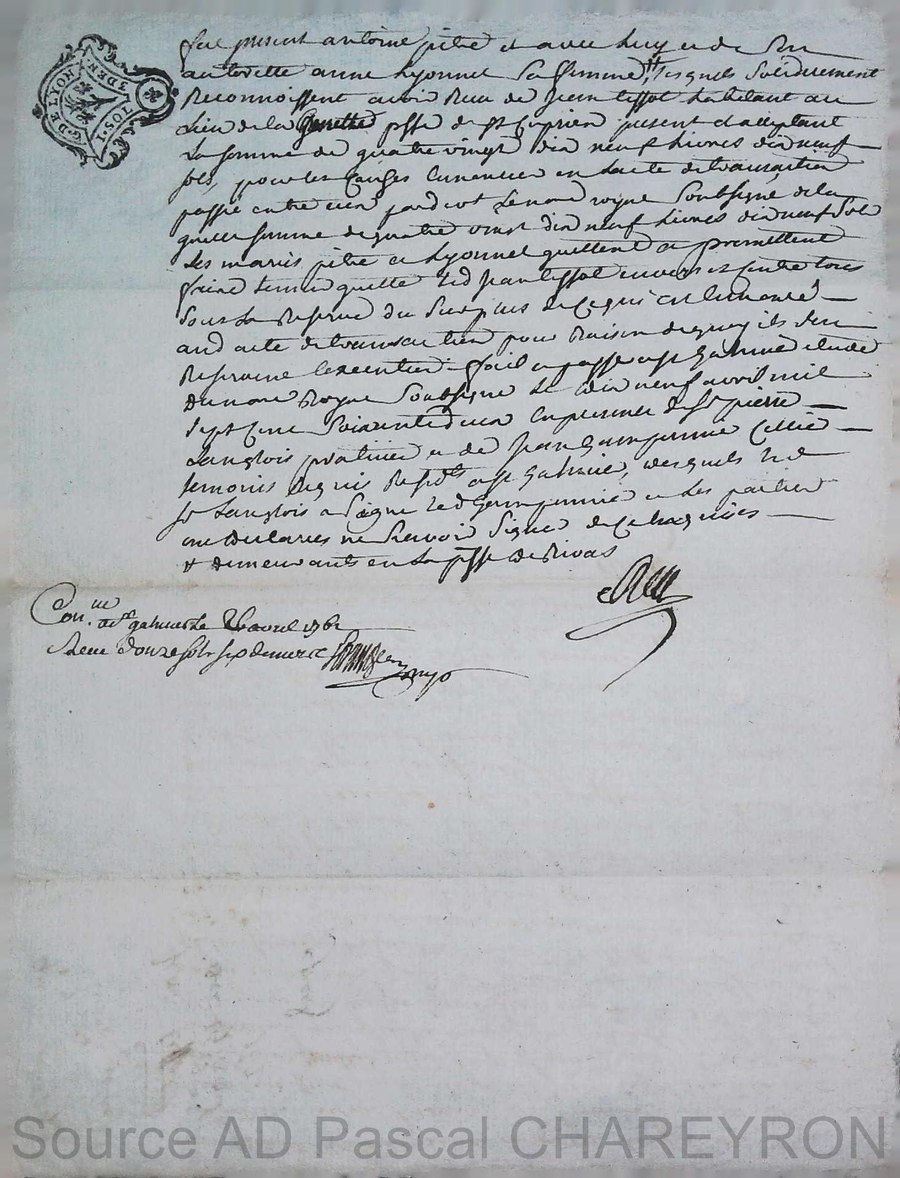 G. DE LYON
MOY. PAP
DEUX SOLS 
fut present antoine pitre et avec luy et de son
autorette anne Lyonnet sa femme # lesquels solidairement
Reconnoissent avoir Receu de Jean tissot habitant au
Lieu de la psse de st Ciprien present et acceptant
La somme de quatre vingt dix neuf Livres dix neuf
sols, pour les Causes enoncées en lacte de transaction
passé entre eux par devant le no.re royal Soubsigné de la
quelle somme de quatre vingt dix neuf Livres dix neuf Sols
Les mariés pitre et Lyonnet quittent et promettent
faire tenir quitte led Jean tissot envers et Contre tous
Sous La Reserve du Surplus de Ce qui est enoncé
aud acte de transaction pour Raison de quoy ils
Reservent Lexecution. fait et passé a st Galmié etude
du no.re Royal Soubsigné Le dix neuf avril mil
sept Cent Soixante deux en presence de Sr pierre
Langlois praticien et de Jean
temoins Requis a st Galmié, desquels led
Sr Langlois a Signé led et Les parties
ont declaré ne Scavoir Signer de Ce Enquises
# demeurants en La psse de Rivas
Con.lle a st galmier Le avril 1762
Receu douze sols six deniers
Source AD Pascal CHAREYRON